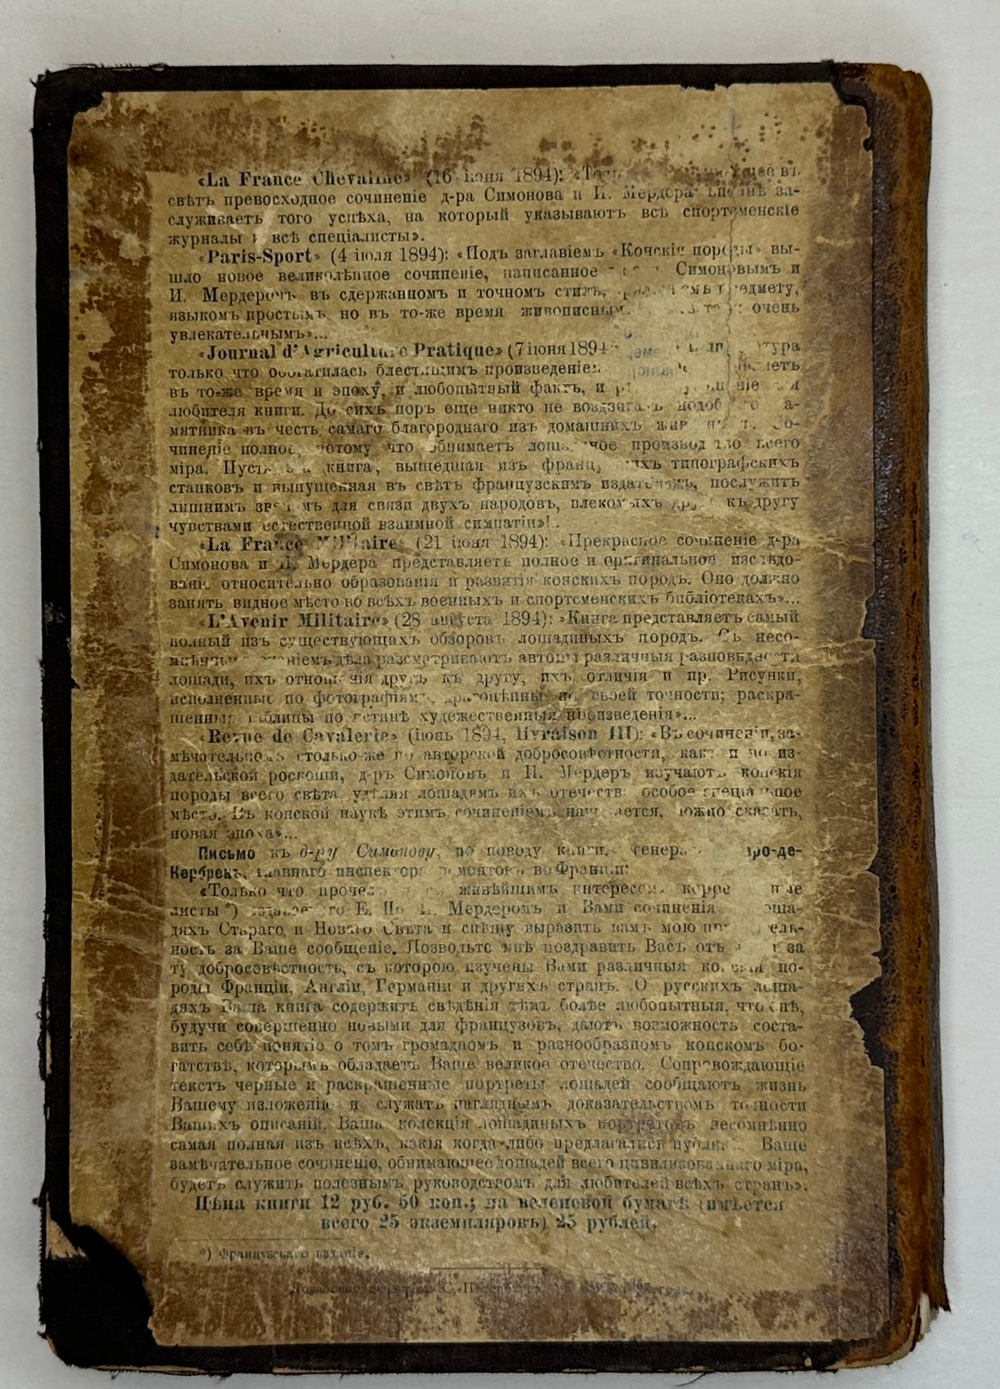 «La France Chevaline» (16 іюня 1894): въ
свѣтъ превосходное сочиненіе д-ра Симонова и И. Мердера вполнѣ за-
служиваетъ того успѣха, на который указываютъ всѣ спортсменскіе
журналы и всѣ спеціалисты».
«Paris-Sport» (4 іюля 1894): «Подъ заглавіемъ «Конскія породы» вы-
шло новое великолѣпное сочиненіе, написанное Симоновымъ и
И. Мердеромъ въ сдержанномъ и точномъ стилѣ, предмету,
языкомъ простымъ, но въ то-же время живописнымъ очень
увлекательнымъ»...
«Journal d'Agriculture Pratique» (7 іюня 1894
только что обогатилась блестящимъ произведеніемъ
въ то-же время и эпоху, и любопытный фактъ, и
любителя книги. До сихъ поръ еще никто не воздвигалъ па-
мятника въ честь самаго благороднаго изъ домашнихъ Со-
чиненіе полное, потому что обнимаетъ лошадиное производство всего
міра. Пусть книга, вышедшая изъ французскихъ типографскихъ
станковъ и выпущенная въ свѣтъ французскимъ издателемъ, послужитъ
лишнимъ звеномъ для связи двухъ народовъ, влекомыхъ другъ къ другу
чувствами естественной взаимной симпатіи»!..
«La France Militaire» (21 іюня 1894): «Прекрасное сочиненіе д-ра
Симонова и И. Мердера представляетъ полное и оригинальное изслѣдо-
ваніе относительно образованія и развитія конскихъ породъ. Оно должно
занять видное мѣсто во всѣхъ военныхъ и спортсменскихъ библіотекахъ»...
«L'Avenir Militaire» (28 августа 1894): «Книга представляетъ самый
полный изъ существующихъ обзоровъ лошадиныхъ породъ. Съ несо-
мнѣннымъ знаніемъ дѣла разсматриваютъ авторы различныя разновидности
лошади, ихъ отношенія другъ къ другу, ихъ отличія и пр. Рисунки,
исполненные по фотографіямъ, драгоцѣнны по своей точности; раскра-
шенныя таблицы по истинѣ художественныя произведенія»...
«Revue de Cavalerie» (іюнь 1894, livraison III): «Въ сочиненіи, за-
мѣчательномъ столько-же по авторской добросовѣстности, какъ и по из-
дательской роскоши, д-ръ Симоновъ и И. Мердеръ изучаютъ конскія
породы всего свѣта, удѣляя лошадямъ ихъ отечества особое спеціальное
мѣсто. Въ конской наукѣ этимъ сочиненіемъ начинается, можно сказать,
новая эпоха»...
Письмо къ д-ру Симонову, по поводу книги,
Кербрекъ, главнаго инспектора ремонтовъ во Франціи:
«Только что прочелъ живѣйшимъ интересомъ
листы *) Мердеромъ и Вами сочиненія лоша-
дяхъ Стараго и Новаго Свѣта и спѣшу выразить вамъ мою признатель-
ность за Ваше сообщеніе. Позвольте мнѣ поздравить Васъ отъ за
ту добросовѣстность, съ которою изучены Вами различныя конскія по-
роды Франціи, Англіи, Германіи и другихъ странъ. О русскихъ лоша-
дяхъ Ваша книга содержитъ свѣдѣнія тѣмъ болѣе любопытныя, что онѣ,
будучи совершенно новыми для французовъ, даютъ возможность соста-
вить себѣ понятіе о томъ громадномъ и разнообразномъ конскомъ бо-
гатствѣ, которымъ обладаетъ Ваше великое отечество. Сопровождающіе
текстъ черные и раскрашенные портреты лошадей сообщаютъ жизнь
Вашему изложенію и служатъ нагляднымъ доказательствомъ точности
Вашихъ описаній. Ваша колекція лошадиныхъ портретовъ несомнѣнно
самая полная изъ всѣхъ, какія когда-либо предлагались публикѣ. Ваше
замѣчательное сочиненіе, обнимающее лошадей всего цивилизованнаго міра,
будетъ служить полезнымъ руководствомъ для любителей всѣхъ странъ».
Цѣна книги 12 руб. 50 коп.; на веленовой бумагѣ (имѣется
всего 25 экземпляровъ) 25 рублей.
*) Французскаго изданія.